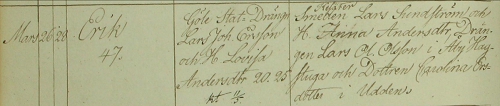 Mars 26 28 Erik 47. Göle Stat-Drängn Lars Joh. Ersson och H. Lovisa Andersdtr 20. 25
Smeden Lars Lundström och H. Anna Andersdtr. Drängen Lars Ol. Olsson i Åby Hagstuga och Dottren Carolina Ersdotter i Udden.